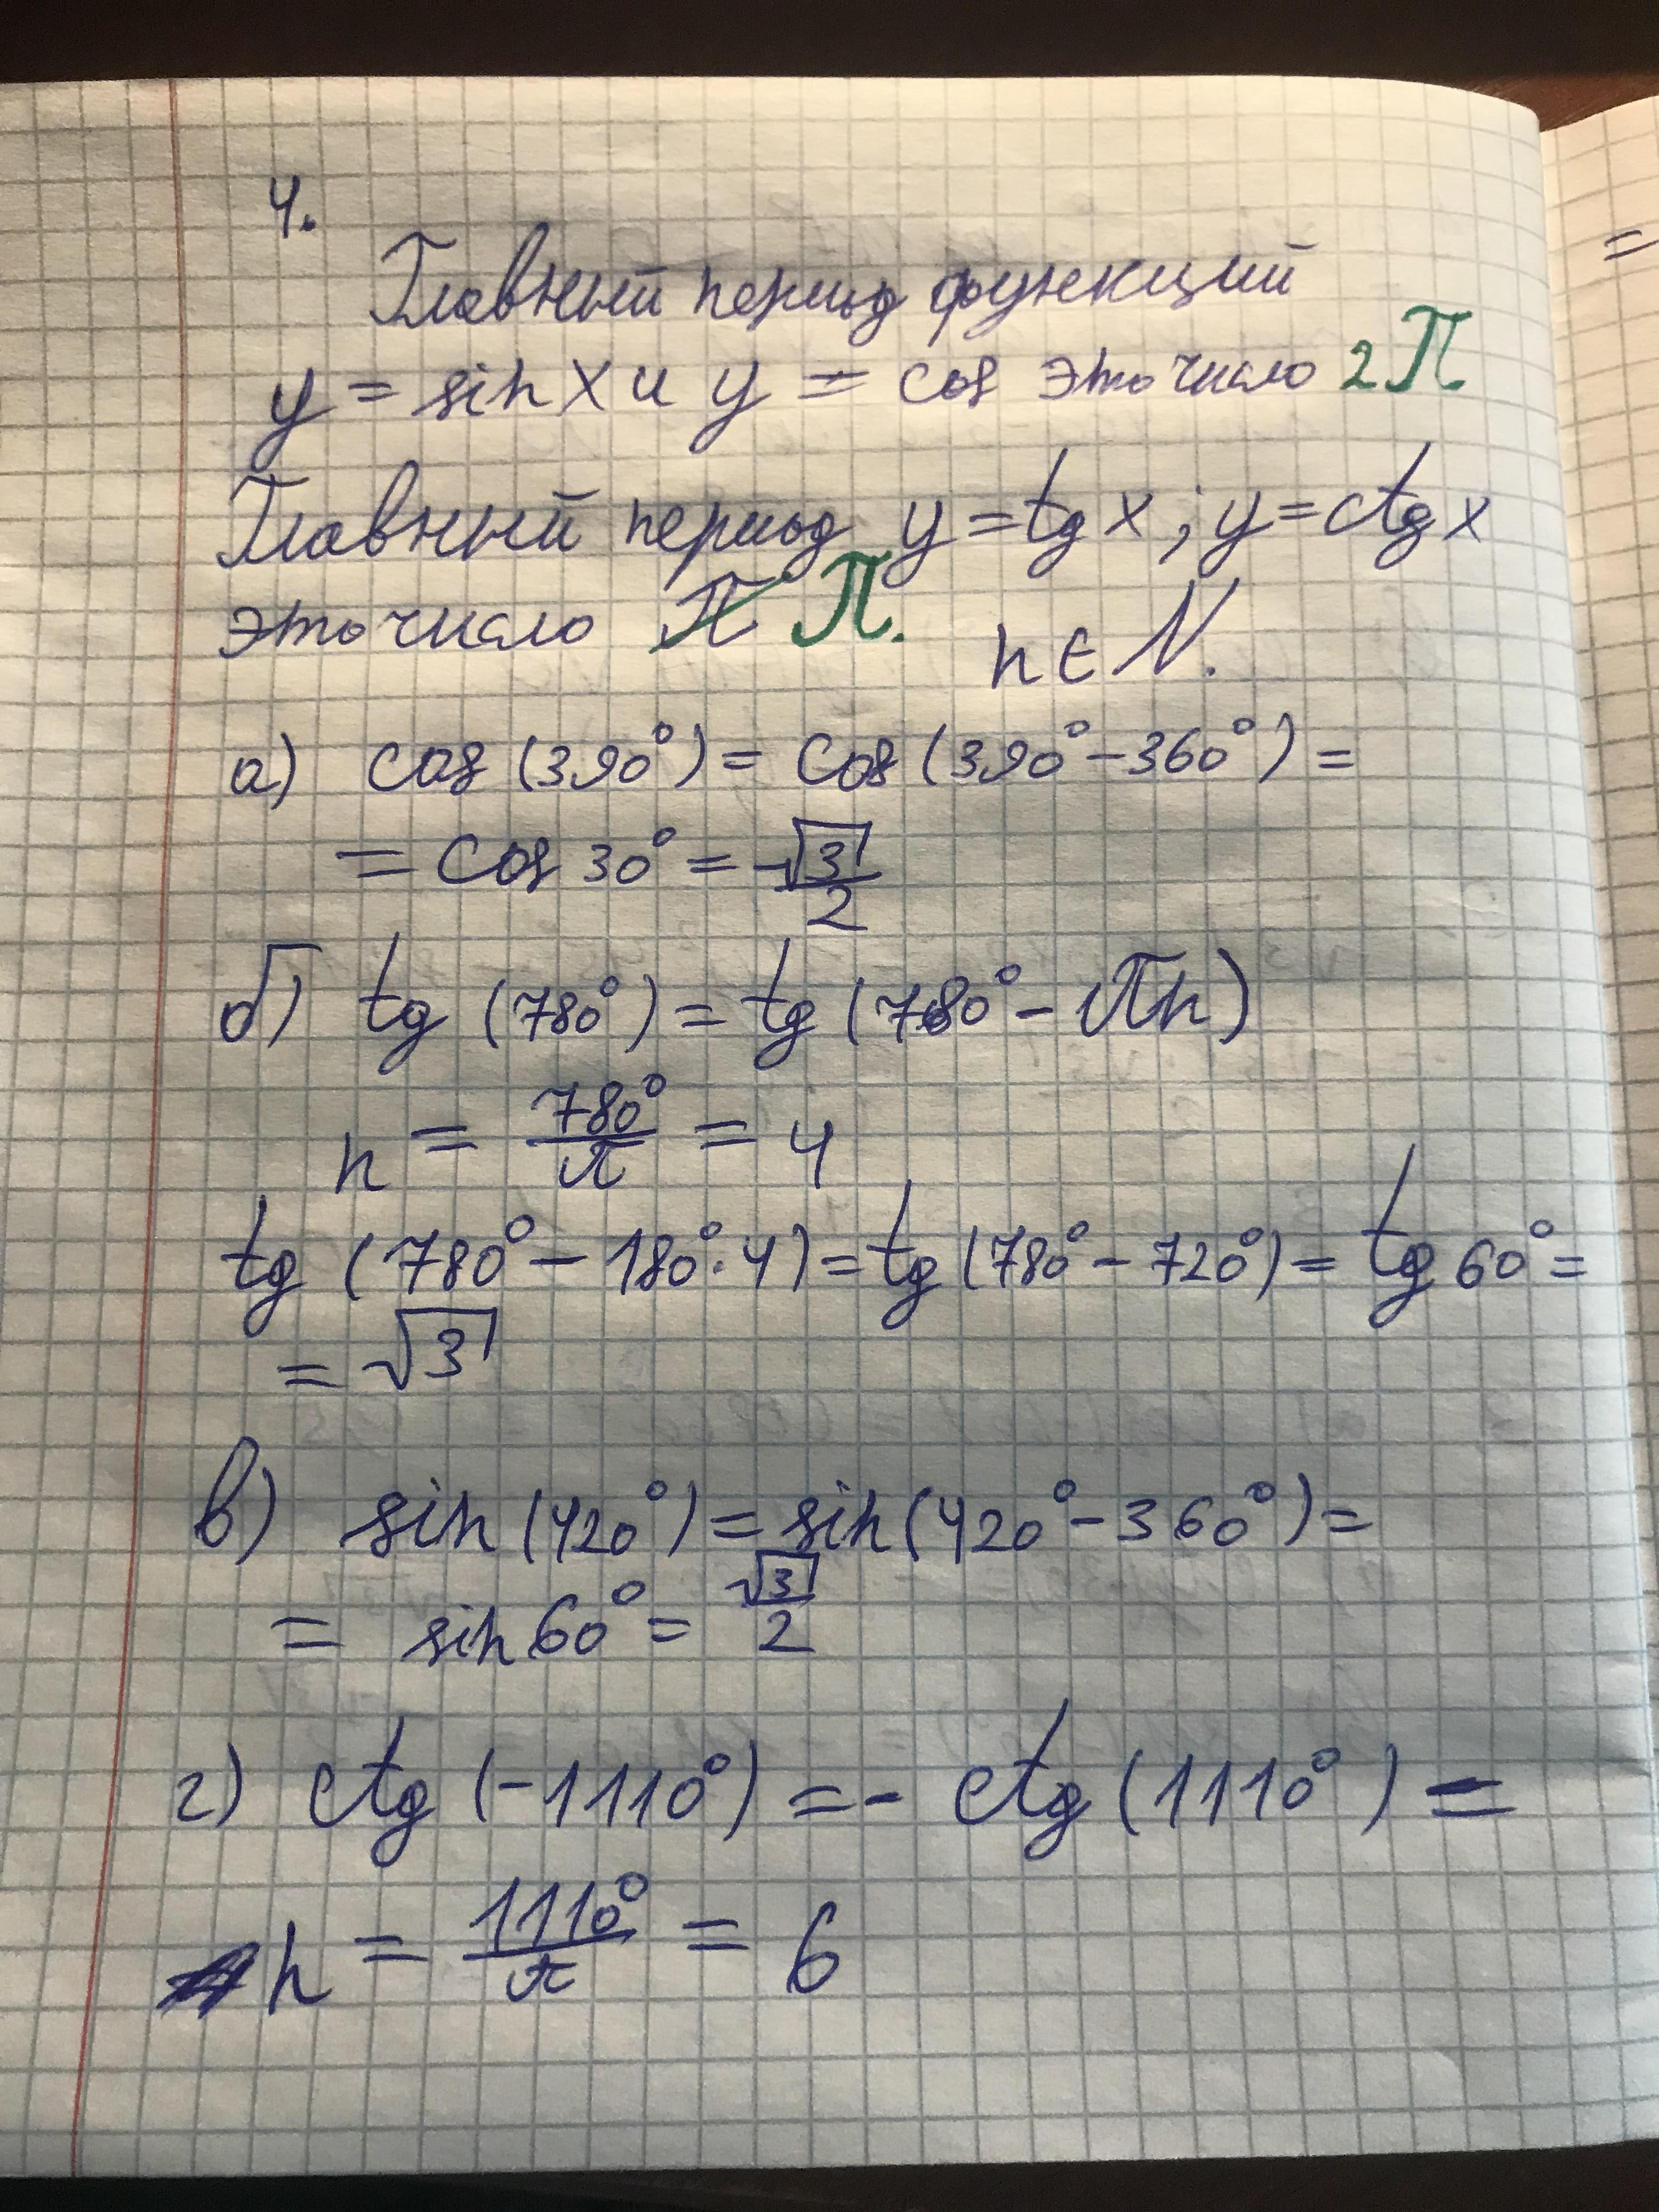 4.
Главный период функций
y = sin x и y = cos это число 2π
Главный период y = tg x ; y = ctg x
это число π π.
n ∈ N.
а) cos (390°) = cos (390° - 360°) =
= cos 30° = √3/2
б) tg (780°) = tg (780° - πn)
n = 780°/π = 4
tg (780° - 180°·4) = tg (780° - 720°) = tg 60° =
= √3
в) sin (420°) = sin (420° - 360°) =
= sin 60° = √3/2
г) ctg (-1110°) = - ctg (1110°) =
n = 1110°/π = 6
=